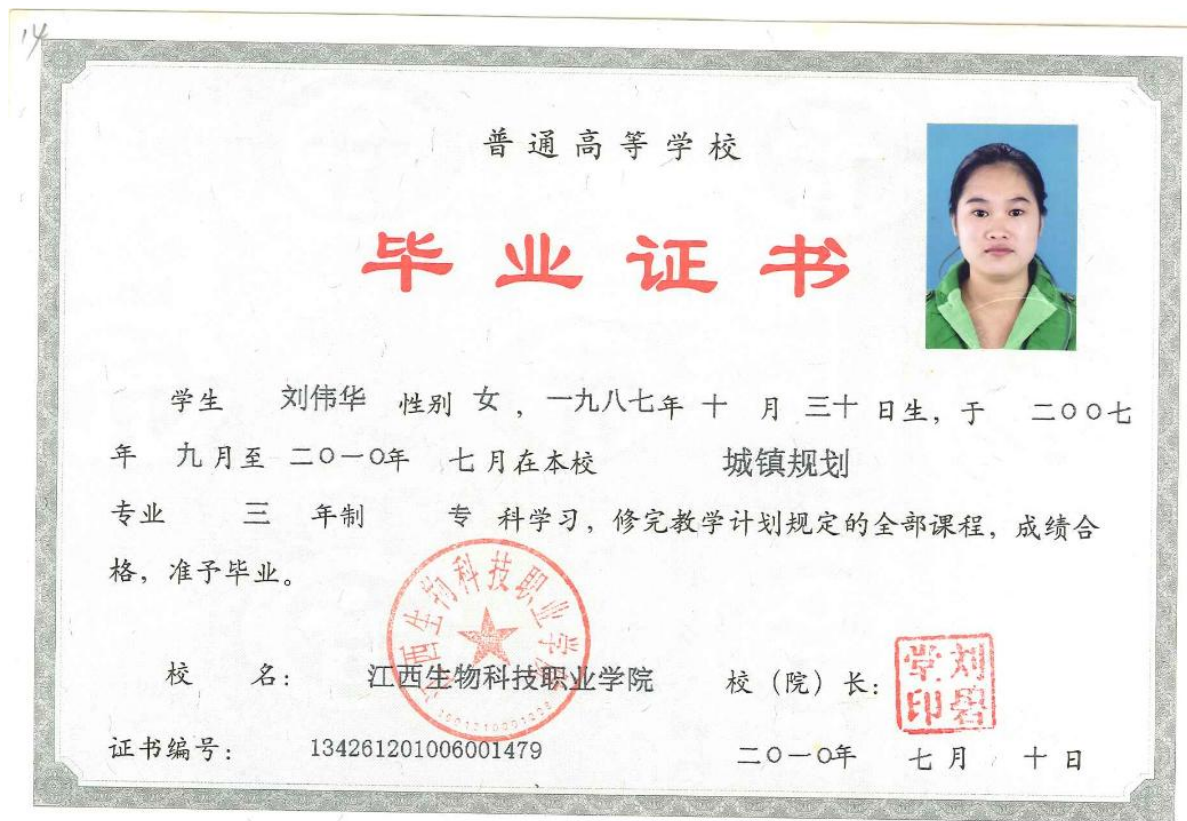 14
普通高等学校
毕业证书
学生 刘伟华 性别 女，一九八七年 十 月 三十 日生，于 二〇〇七
年 九月至 二〇一〇年 七月在本校 城镇规划
专业 三 年制 专 科学习，修完教学计划规定的全部课程，成绩合
格，准予毕业。
江西生物科技职业学院
校 名： 江西生物科技职业学院 校（院）长：
证书编号： 134261201006001479 二〇一〇年 七月 十日